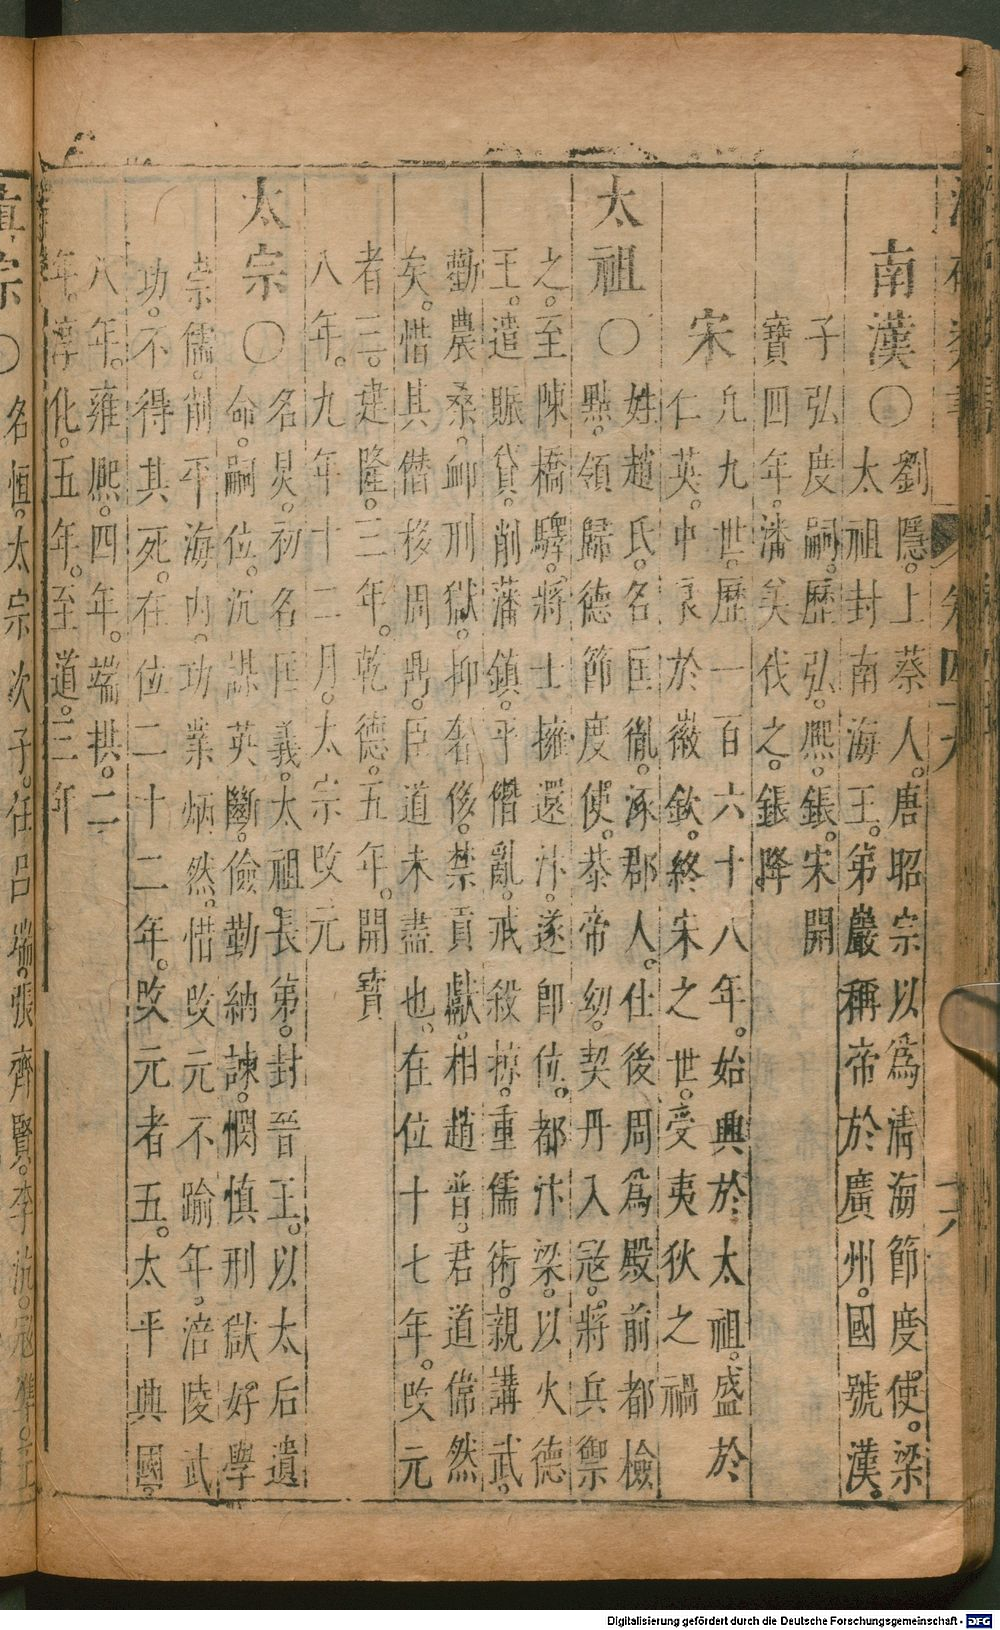 南漢〇劉隱。上蔡人。唐昭宗以為清海節度使。梁
太祖封南海王。第巖稱帝於廣州。國號漢。
子弘度嗣。歷弘熙。鋹。宋開
寶四年。潘美伐之。鋹降。
宋凡九世。歷一百六十八年。始興於太祖。盛於
仁英。中衰於徽欽。終宋之世。受夷狄之禍
太祖〇姓趙氏。名匡胤。涿郡人。仕後周為殿前都檢
點。領歸德節度使。恭帝幼。契丹入寇。將兵禦
之。至陳橋驛。將士擁還汴。遂即位。都汴梁。以火德
王。遣賑貸。削藩鎮。平僭亂。戒殺掠。重儒術。親講武。
勸農桑。卹刑獄。抑奢侈。禁貢獻。相趙普。君道偉然
矣。惜其僭移周鼎。臣道未盡也。在位十七年。改元
者三。建隆。三年。乾德。五年。開寶
八年。九年十二月。太宗改元
太宗〇名炅。初名匡義。太祖長第。封晉王。以太后遺
命。嗣位。沉謀英斷。儉勤納諫。憫慎刑獄。好學
崇儒。削平海內。功業炳然。惜改元不踰年。涪陵武
功。不得其死。在位二十二年。改元者五。太平興國。
八年。雍熙。四年。端拱。二
年。淳化。五年。至道。三年
真宗〇名恒。太宗次子。任呂端。張齊賢。李沆。寇準。王
卷四
十六
Digitalisierung gefördert durch die Deutsche Forschungsgemeinschaft - DFG